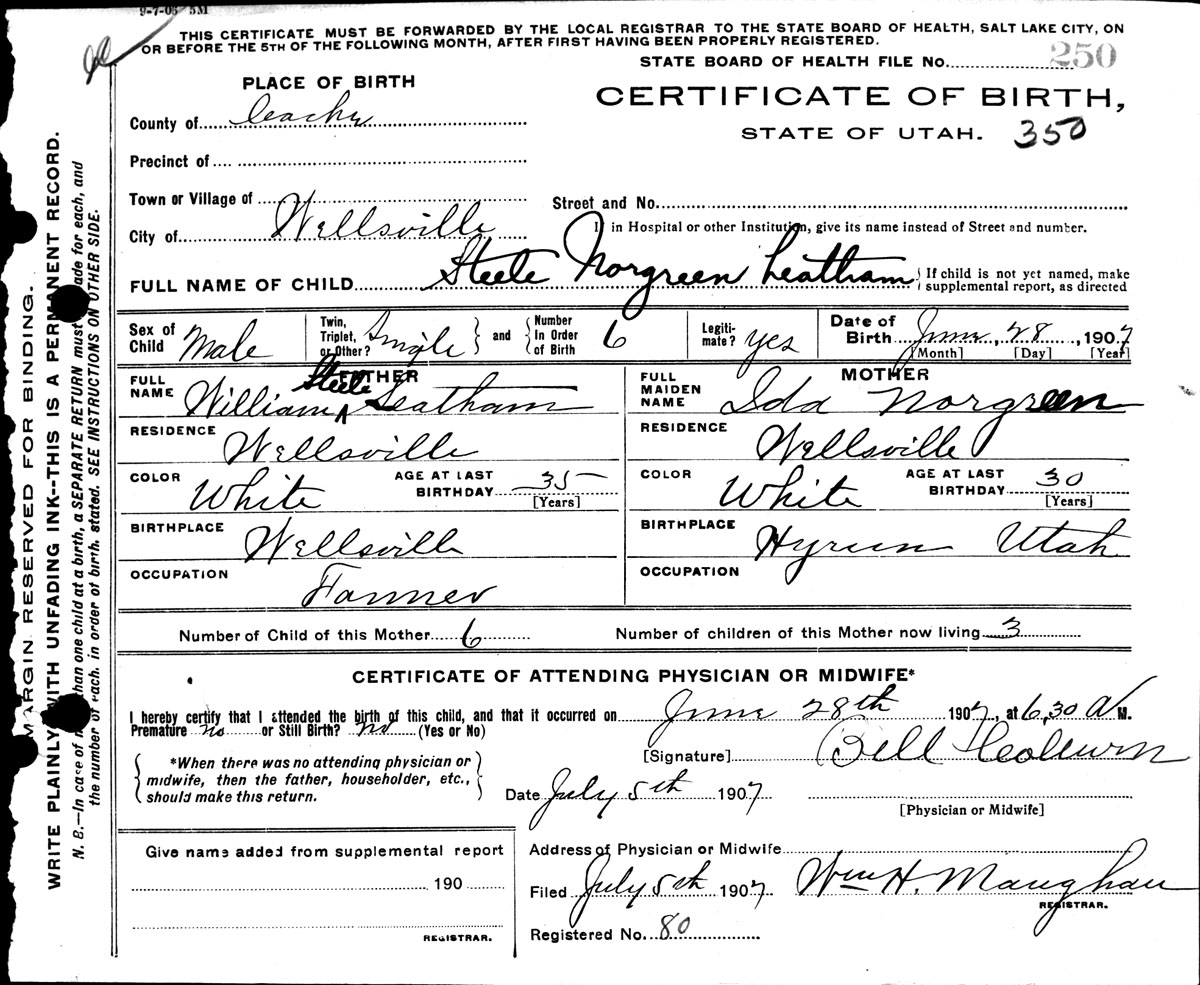 9-7-06 5M
THIS CERTIFICATE MUST BE FORWARDED BY THE LOCAL REGISTRAR TO THE STATE BOARD OF HEALTH, SALT LAKE CITY, ON
OR BEFORE THE 5TH OF THE FOLLOWING MONTH, AFTER FIRST HAVING BEEN PROPERLY REGISTERED.
STATE BOARD OF HEALTH FILE No. 250
PLACE OF BIRTH
CERTIFICATE OF BIRTH,
STATE OF UTAH. 350
County of Ceache
Precinct of
Town or Village of
Street and No.
City of Wellsville
If in Hospital or other Institution, give its name instead of Street and number.
FULL NAME OF CHILD Steele Norgreen Leatham { If child is not yet named, make
supplemental report, as directed
Sex of Child Male
Twin, Triplet, or Other? Single } and { Number In Order of Birth 6
Legitimate? yes
Date of Birth June, 28, 1907
[Month] [Day] [Year]
FATHER
FULL NAME William Steele Leatham
RESIDENCE Wellsville
COLOR White AGE AT LAST BIRTHDAY 35 [Years]
BIRTHPLACE Wellsville
OCCUPATION Farmer
MOTHER
FULL MAIDEN NAME Ida Norgreen
RESIDENCE Wellsville
COLOR White AGE AT LAST BIRTHDAY 30 [Years]
BIRTHPLACE Hyrum Utah
OCCUPATION
Number of Child of this Mother 6 Number of children of this Mother now living 3
CERTIFICATE OF ATTENDING PHYSICIAN OR MIDWIFE*
I hereby certify that I attended the birth of this child, and that it occurred on June 28th 1907, at 6,30 A M.
Premature no or Still Birth? no (Yes or No)
[Signature] Bell
*When there was no attending physician or
midwife, then the father, householder, etc.,
should make this return.
Date July 5th 1907
[Physician or Midwife]
Give name added from supplemental report
190
REGISTRAR.
Address of Physician or Midwife
Filed July 5th 1907 Wm H. Maughan
REGISTRAR.
Registered No. 80
MARGIN RESERVED FOR BINDING.
WRITE PLAINLY WITH UNFADING INK--THIS IS A PERMANENT RECORD.
N. B.—In case of more than one child at a birth, a SEPARATE RETURN must be made for each, and
the number of each, in order of birth, stated. SEE INSTRUCTIONS ON OTHER SIDE.